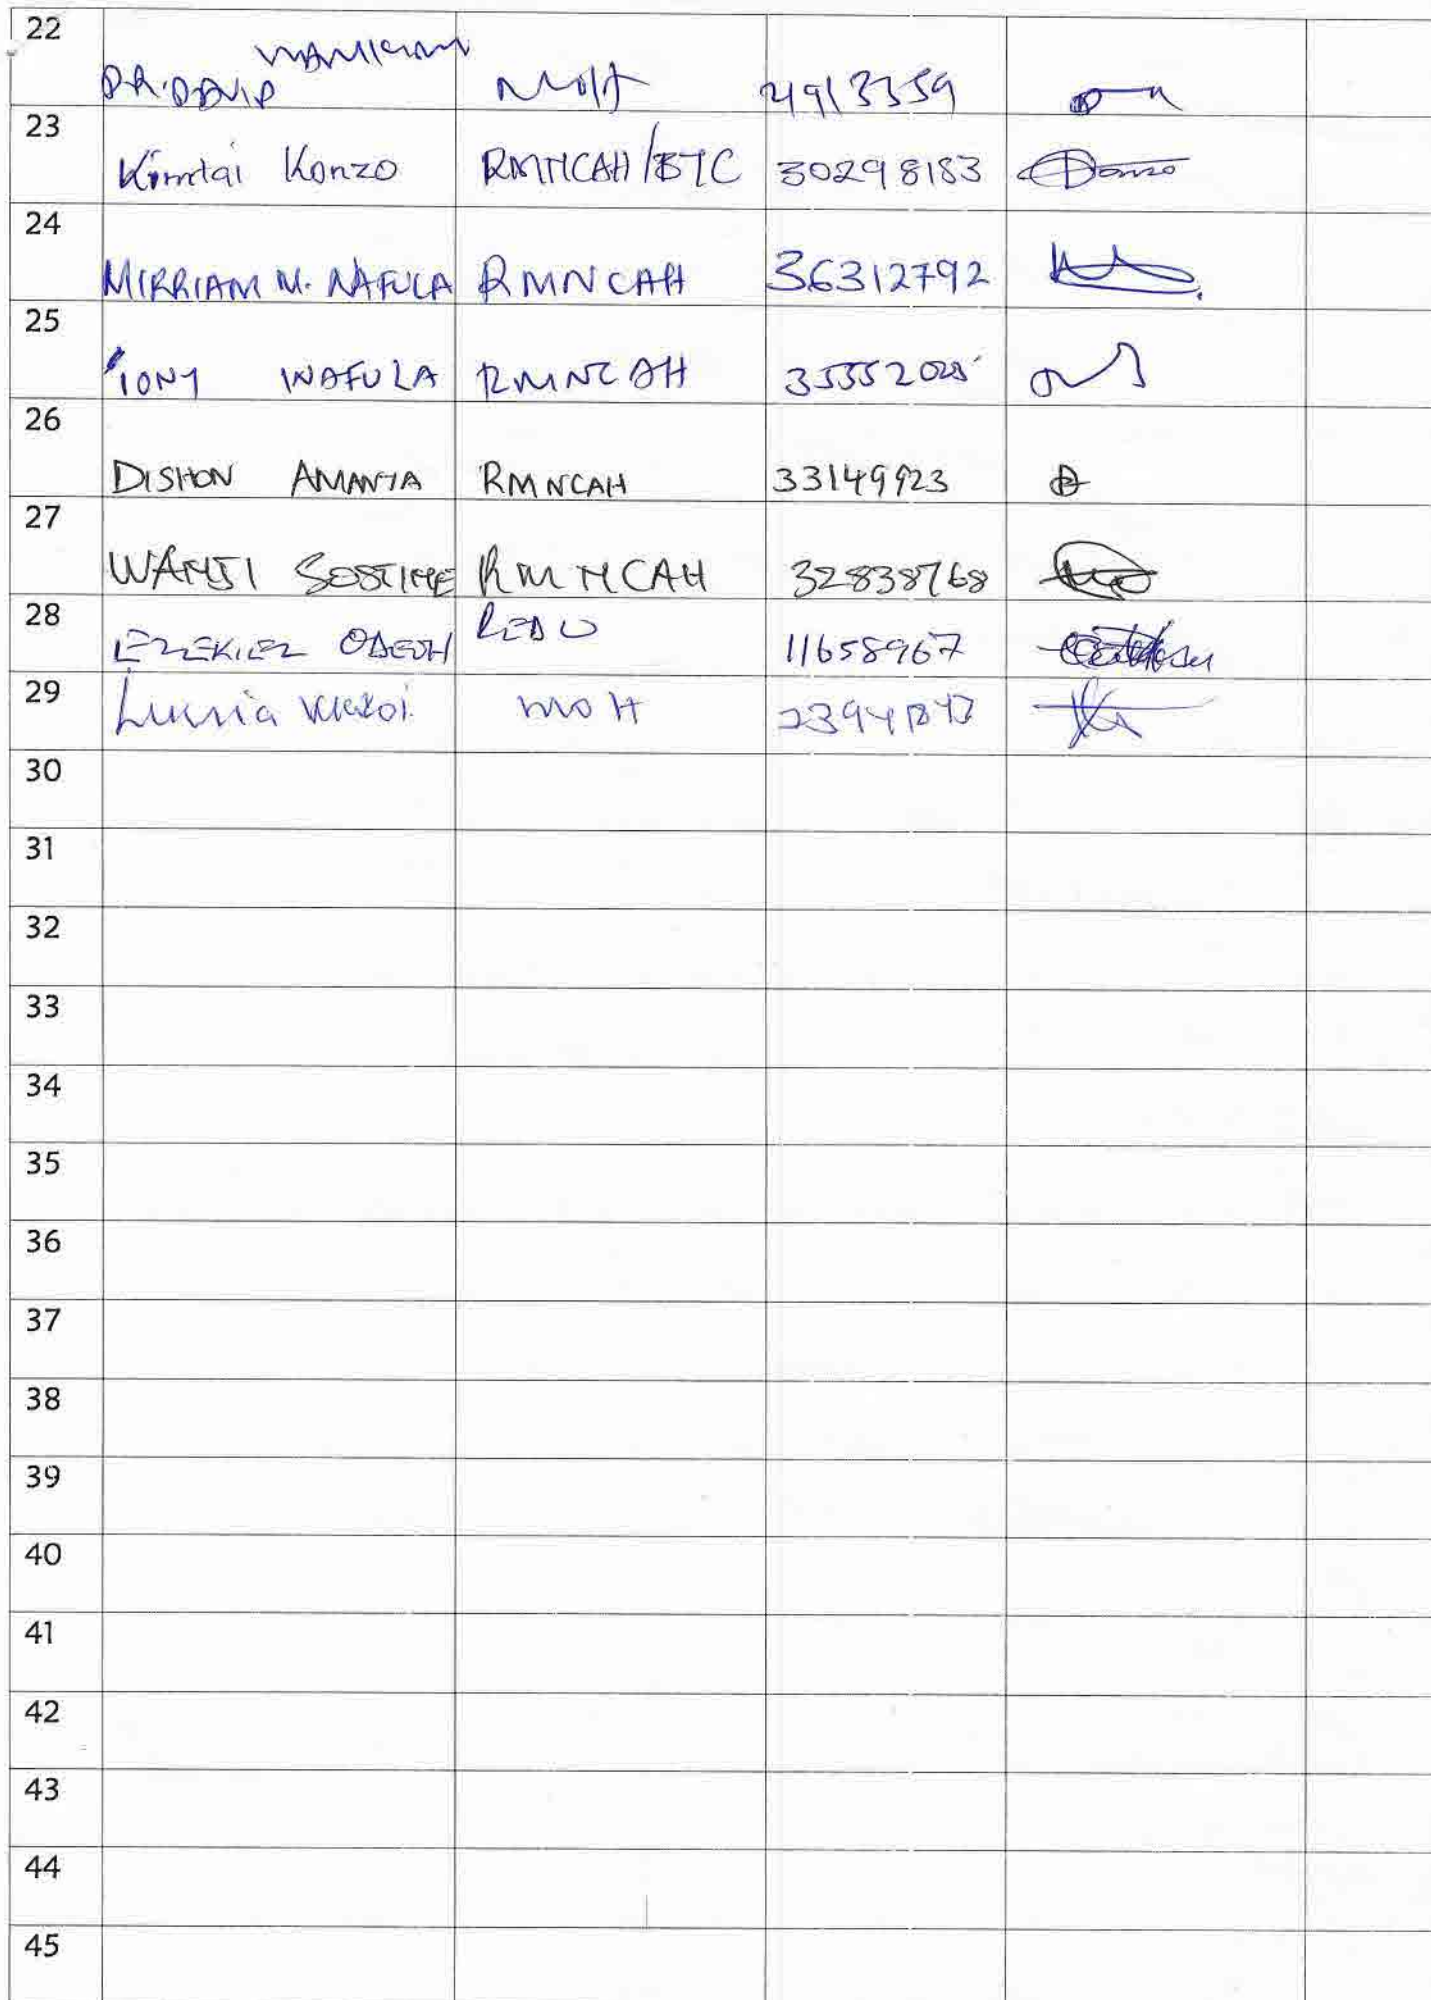 22
DR. DAVID MoH 4913359
23 Kimtai Konzo RMNCAH/BTC 30298183
24
MIRRIAM N. NAFULA RMNCAH 36312792
25
TONY WAFULA RMNCAH
26
DISHON AMANYA RMNCAH 33149923
27
WANJI SOSTINE RMNCAH 32838768
28
EZEKIEL 11658967
29
MOH
30
31
32
33
34
35
36
37
38
39
40
41
42
43
44
45